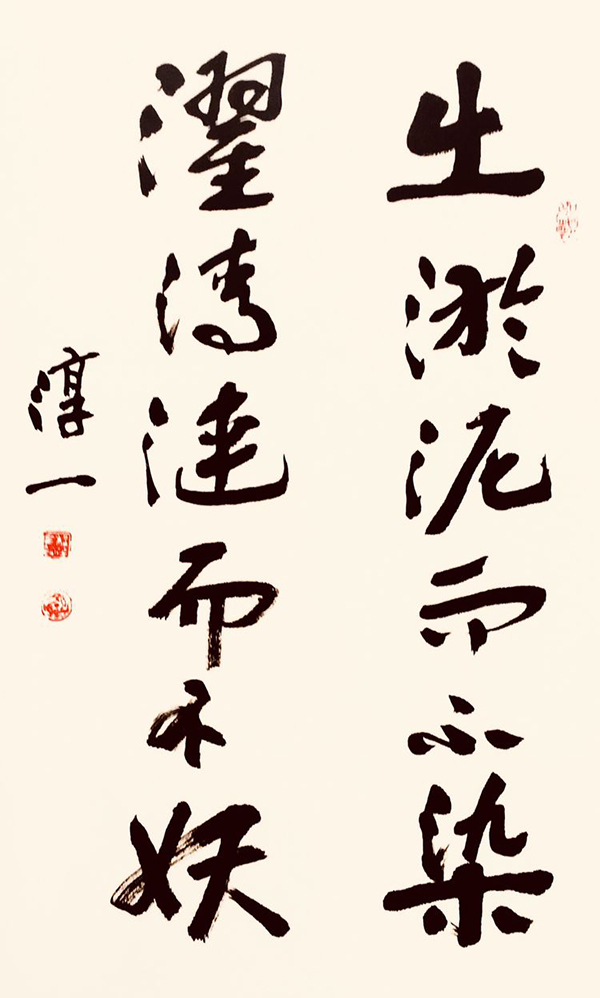 出淤泥而不染
濯清漣而不妖
淳一